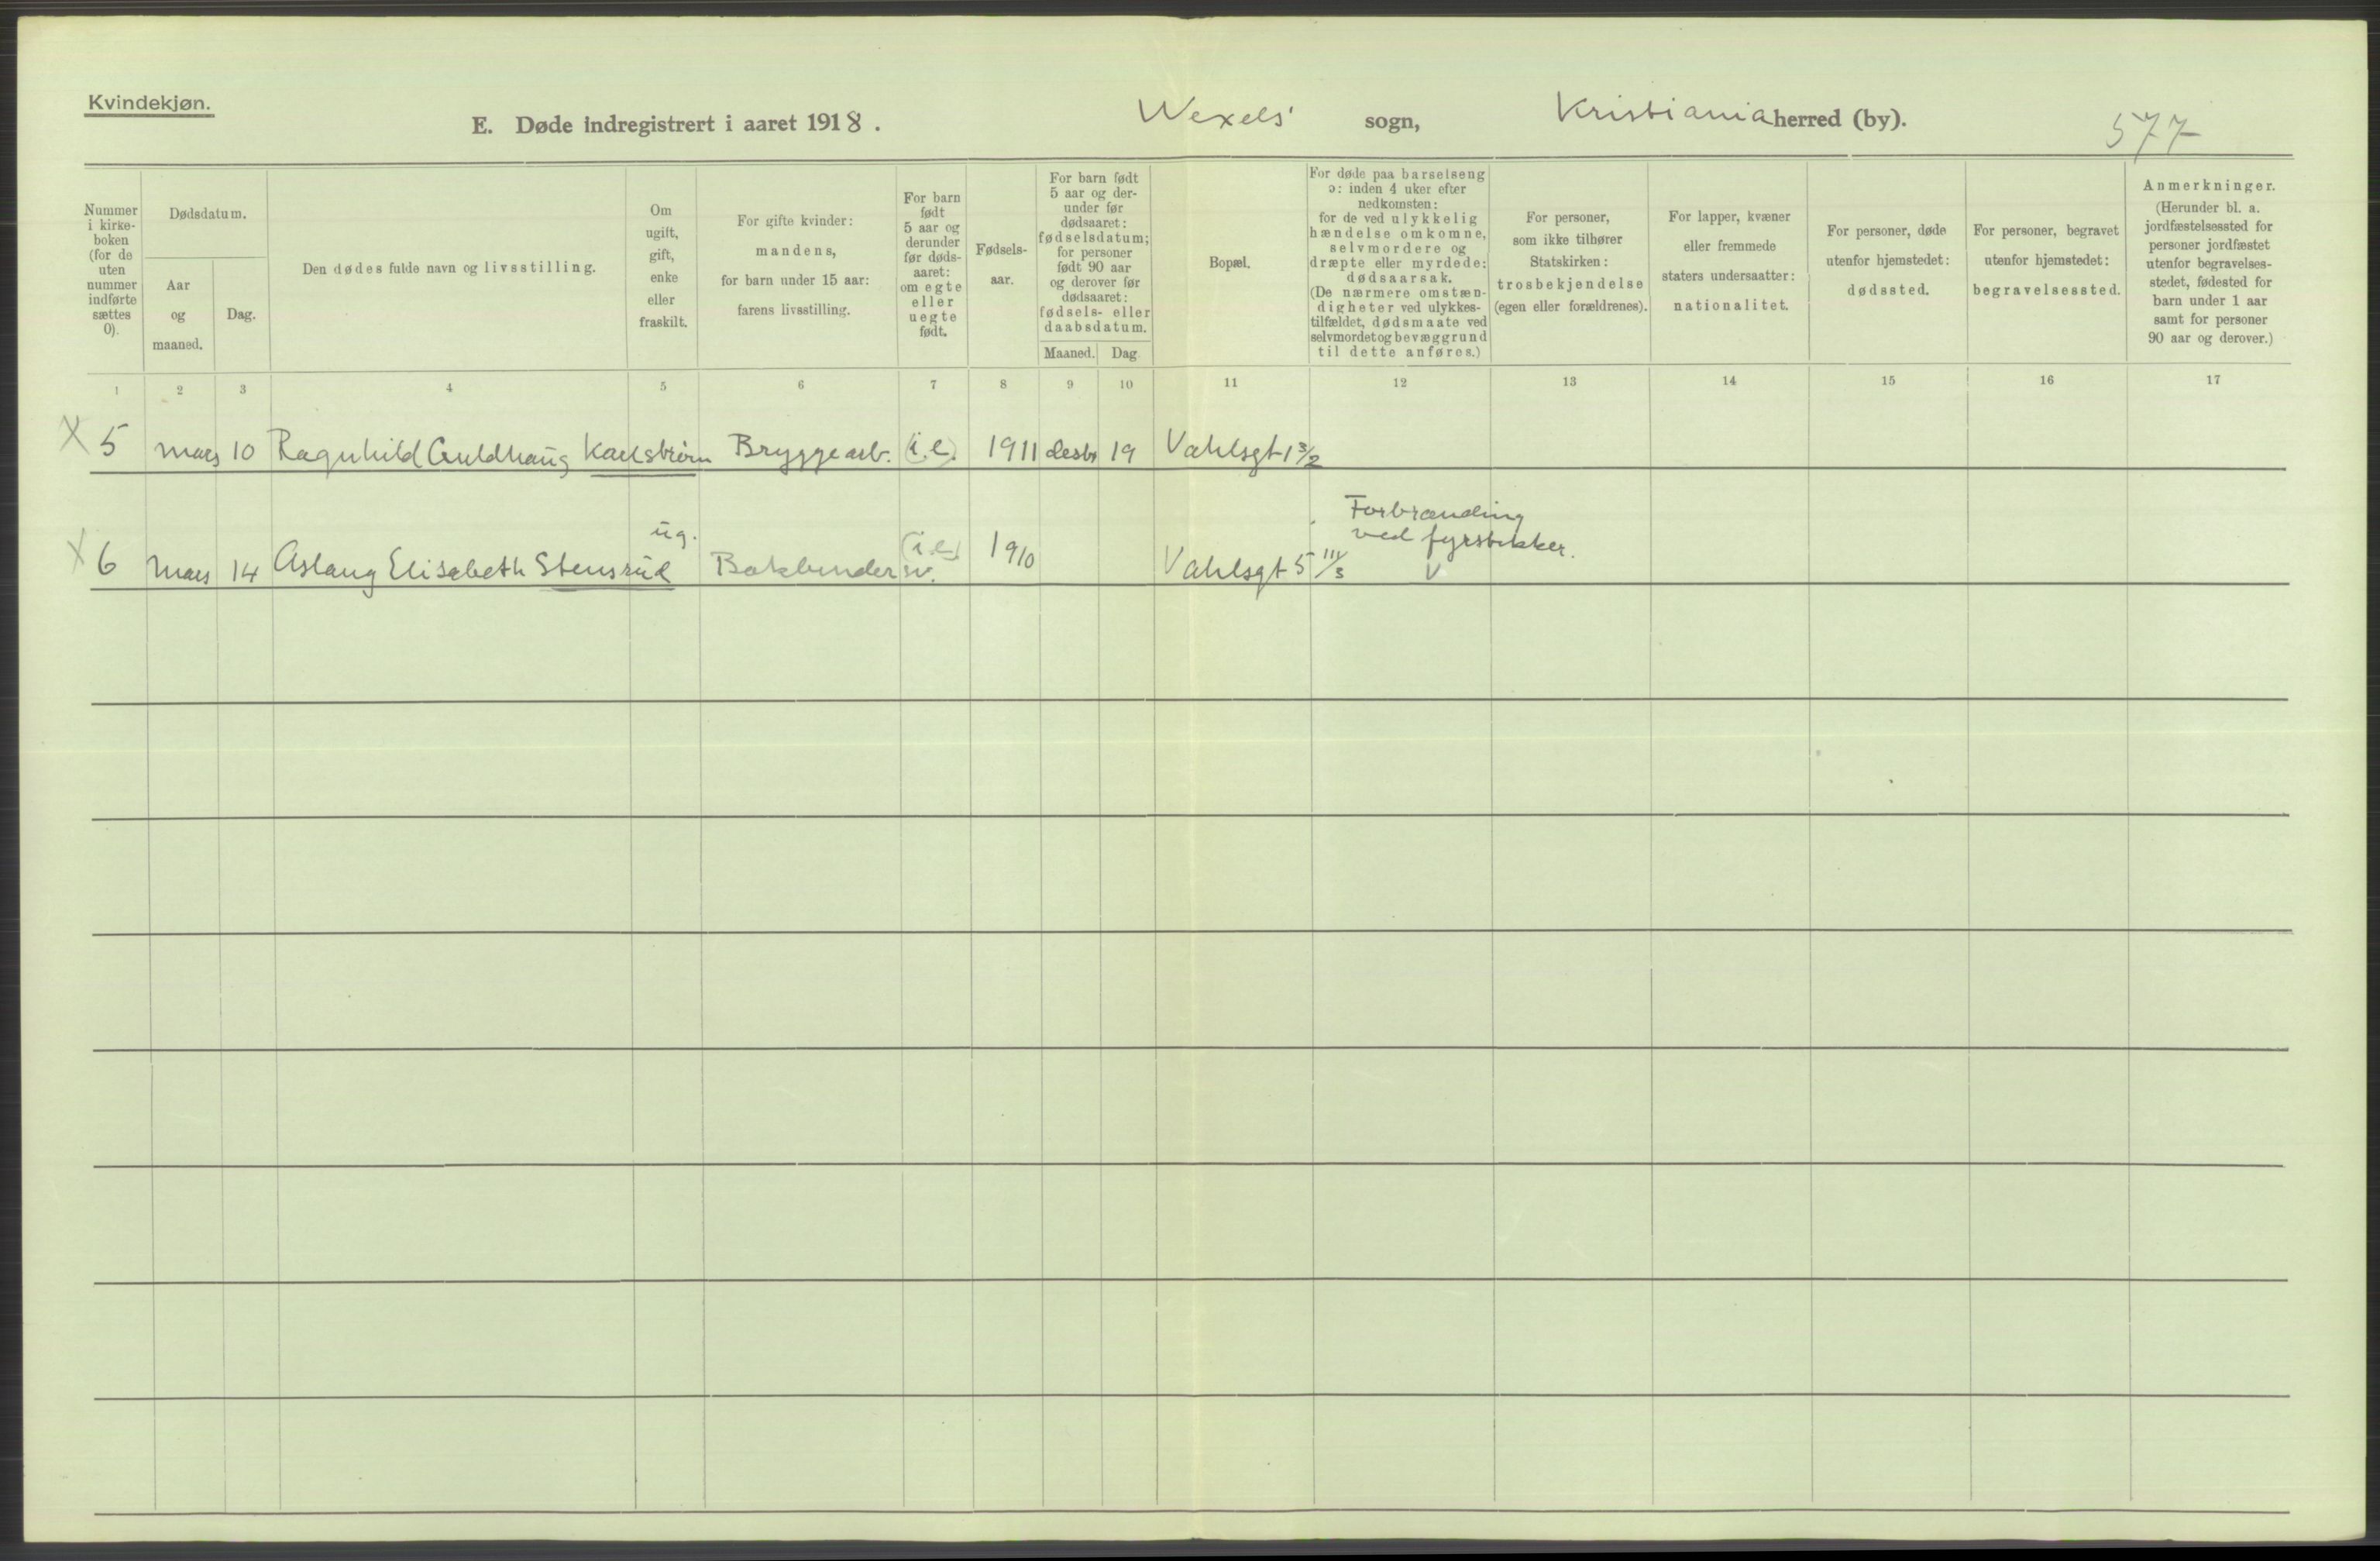 Kvindekjøn.
E. Døde indregistrert i aaret 1918.
Wexels' sogn,
Kristiania herred (by).
577
Nummer
i kirke-
boken
(for de
uten
nummer
indførte
sættes
0).
Dødsdatum.
Aar
og
maaned.
Dag.
Den dødes fulde navn og livsstilling.
Om
ugift,
gift,
enke
eller
fraskilt.
For gifte kvinder:
mandens,
for barn under 15 aar:
farens livsstilling.
For barn
født
5 aar og
derunder
før døds-
aaret:
om egte
eller
uegte
født.
Fødsels-
aar.
For barn født
5 aar og der-
under før
dødsaaret:
fødselsdatum;
for personer
født 90 aar
og derover før
dødsaaret:
fødsels- eller
daabsdatum.
Maaned. Dag
Bopæl.
For døde paa barselseng
ɔ: inden 4 uker efter
nedkomsten:
for de ved ulykkelig
hændelse omkomne,
selvmordere og
dræpte eller myrdede:
dødsaarsak.
(De nærmere omstæn-
digheter ved ulykkes-
tilfældet, dødsmaate ved
selvmordet og bevæggrund
til dette anføres.)
For personer,
som ikke tilhører
Statskirken:
trosbekjendelse
(egen eller forældrenes).
For lapper, kvæner
eller fremmede
staters undersaatter:
nationalitet.
For personer, døde
utenfor hjemstedet:
dødssted.
For personer, begravet
utenfor hjemstedet:
begravelsessted.
Anmerkninger.
(Herunder bl. a.
jordfæstelsessted for
personer jordfæstet
utenfor begravelses-
stedet, fødested for
barn under 1 aar
samt for personer
90 aar og derover.)
1 2 3 4 5 6 7 8 9 10 11 12 13 14 15 16 17
X 5 mars 10 Ragnhild Guldhaug Karlstrøm Bryggearb. (i.e.) 1911 desbr 19 Vahlsgt 1 3/2
ug.
Forbrænding
ved fyrstikker.
X 6 mars 14 Aslaug Elisabeth Stensrud Bokbindersv. (i.e.) 1910 Vahlsgt 5 III/3 V